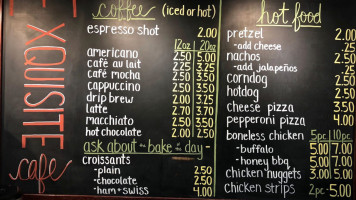 EXQUISITE
cafe
coffee (iced or hot)
espresso shot 2.00
12oz | 20oz
americano 2.50 5.00
café au lait 2.25 3.25
café mocha 2.50 3.50
cappuccino 2.50 3.50
drip brew 2.00 3.25
latte 2.70 3.70
macchiato 2.50 3.50
hot chocolate 2.00 2.50
ask about the bake of the day -
croissants
-plain 2.50
-chocolate 2.50
-ham + swiss 4.00
hot food
pretzel 2.00
-add cheese .25
nachos 2.50
-add jalapeños
corndog 2.50
hotdog 2.50
cheese pizza 3.50
pepperoni pizza 4.00
boneless chicken 5pc | 10pc
-buffalo 5.00 7.00
-honey bbq 5.00 7.00
chicken nuggets 3.00 5.00
chicken strips 2pc-5.00